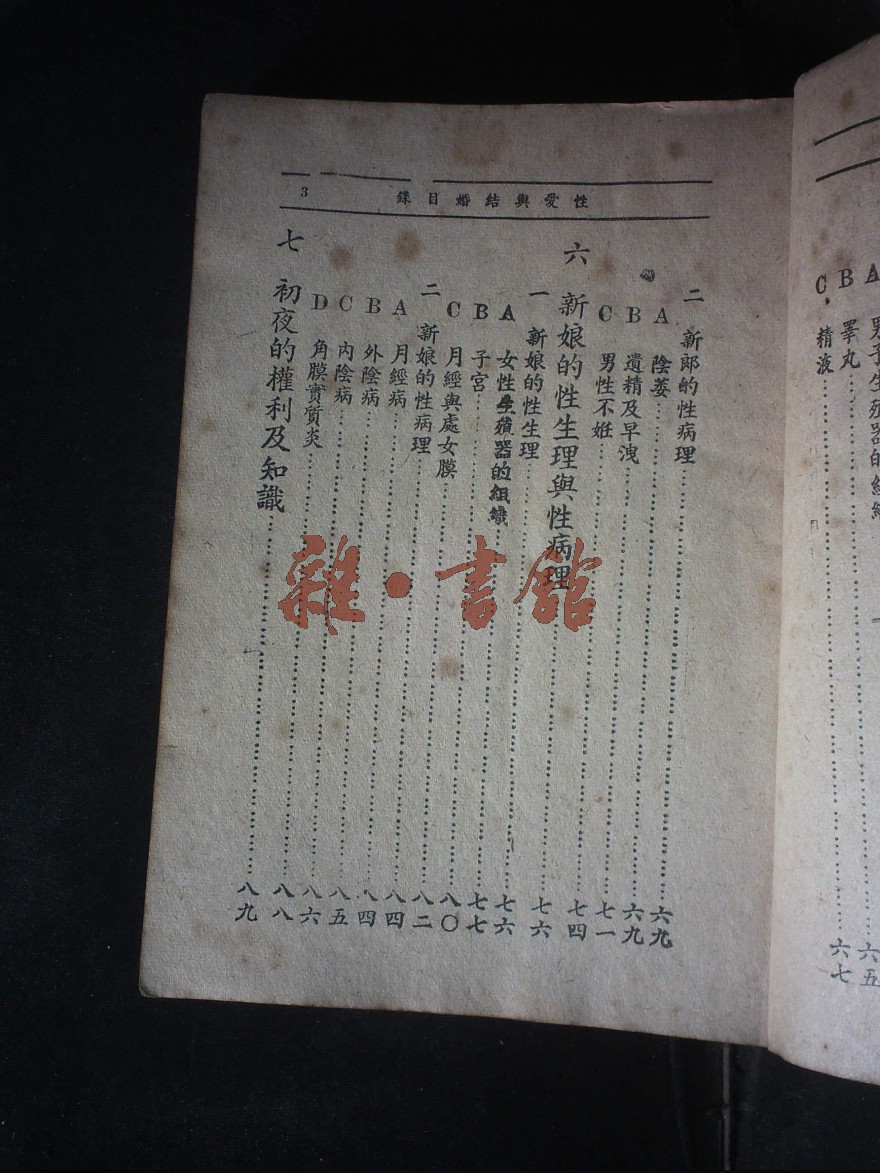 A 男子生殖器的組織
B 睪丸……六五
C 精液……六七
性愛與結婚目錄 3
二 新郎的性病理……六九
A 陰萎……六九
B 遺精及早洩……七一
C 男性不姙……七四
六 新娘的性生理與性病理……七六
一 新娘的性生理……七六
A 女性生殖器的組織……七七
B 子宮……八〇
C 月經與處女膜……八二
二 新娘的性病理……八四
A 月經病……八四
B 外陰病……八五
C 內陰病……八六
D 角膜實質炎……八八
七 初夜的權利及知識……八九
雜·書館